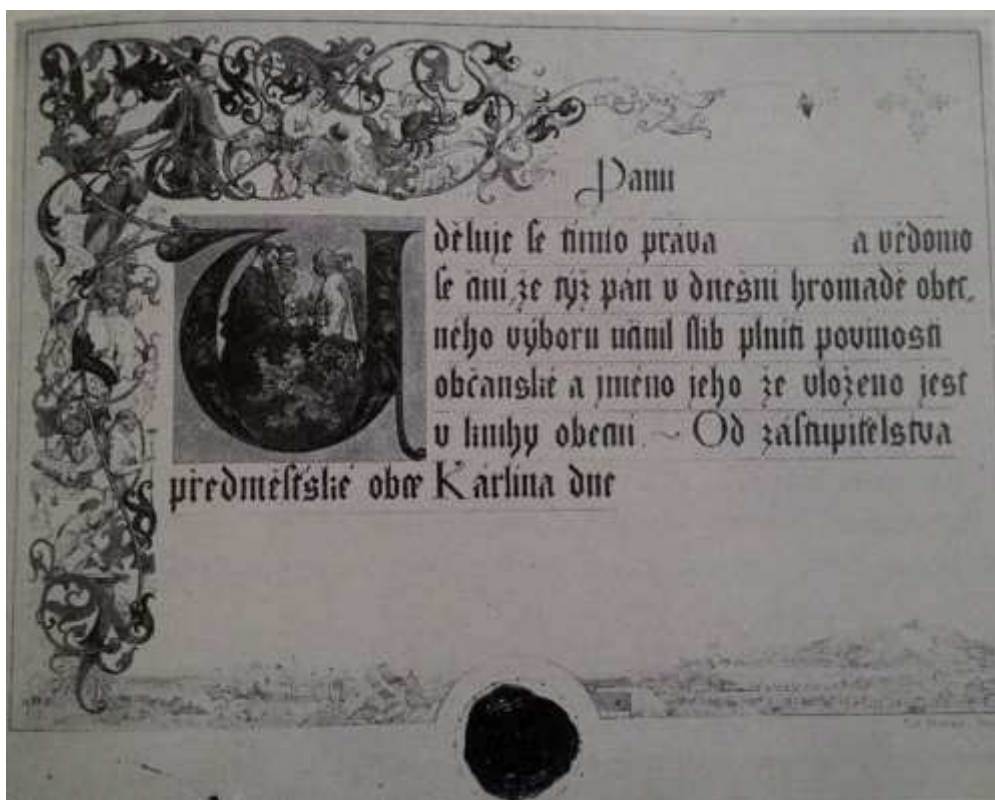 Panu
Uděluje se tímto práva a vědomo
se činí, že týž pán v dnešní hromadě obec,
ného výboru učinil slib plniti povinosti
občanské a jméno jeho že vloženo jest
v knihy obecní. ~ Od zastupitelstva
předměstské obce Karlína dne